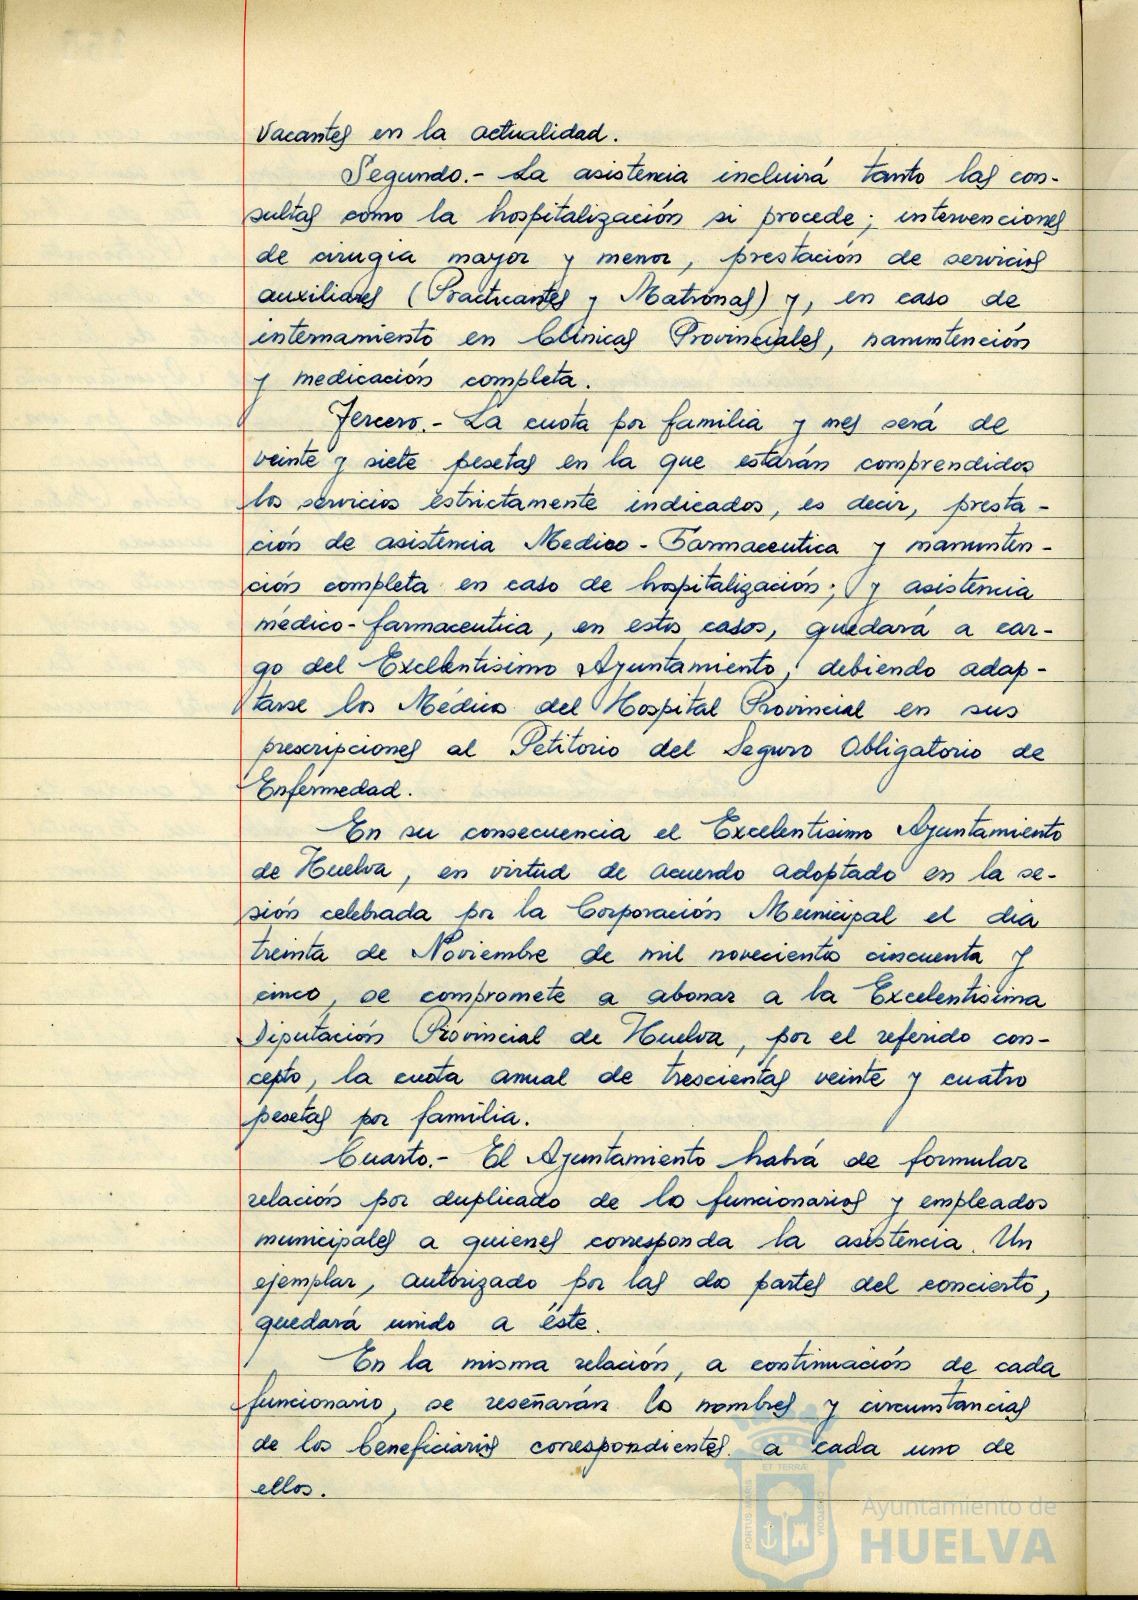 vacantes en la actualidad.
Segundo.- La asistencia incluirá tanto las con-
sultas como la hospitalización si procede; intervenciones
de cirugia mayor y menor, prestación de servicios
auxiliares (Practicantes y Matronas) y, en caso de
internamiento en Clinicas Provinciales, manuntención
y medicación completa.
Tercero.- La cuota por familia y mes será de
veinte y siete pesetas en la que estarán comprendidos
los servicios estrictamente indicados, es decir, presta-
ción de asistencia Medico-Farmaceutica y manunten-
ción completa en caso de hospitalización; y asistencia
médico-farmaceutica, en estos casos, quedará a car-
go del Excelentisimo Ayuntamiento, debiendo adap-
tarse los Médicos del Hospital Provincial en sus
prescripciones al Petitorio del Seguro Obligatorio de
Enfermedad.
En su consecuencia el Excelentisimo Ayuntamiento
de Huelva, en virtud de acuerdo adoptado en la se-
sión celebrada por la Corporación Municipal el dia
treinta de Noviembre de mil novecientos cincuenta y
cinco, se compromete a abonar a la Excelentisima
Diputación Provincial de Huelva, por el referido con-
cepto, la cuota anual de trescientas veinte y cuatro
pesetas por familia.
Cuarto.- El Ayuntamiento habrá de formular
relación por duplicado de los funcionarios y empleados
municipales a quienes corresponda la asistencia. Un
ejemplar, autorizado por las dos partes del concierto,
quedará unido a éste.
En la misma relación, a continuación de cada
funcionario, se reseñarán los nombres y circunstancias
de los beneficiarios correspondientes a cada uno de
ellos.
ET TERRÆ
PORTUS MARIS
CUSTODIA
Ayuntamiento de
HUELVA